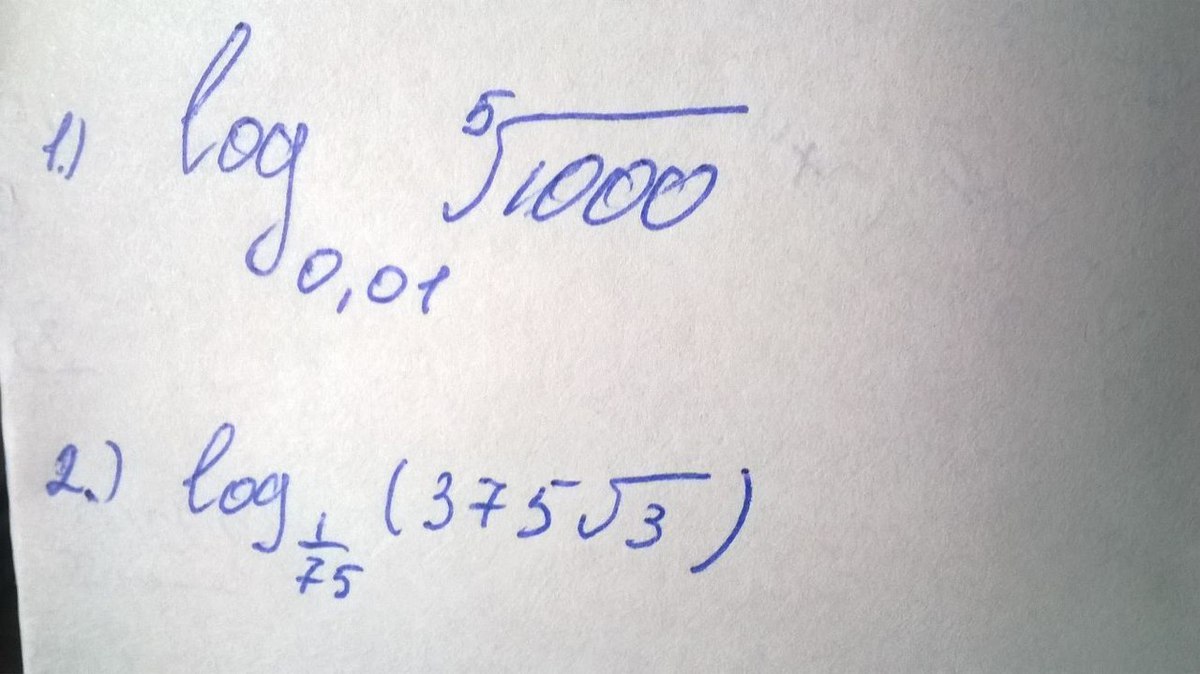 1.) log_{0,01} \sqrt[5]{1000}
2.) log_{\frac{1}{75}} (375\sqrt{3})